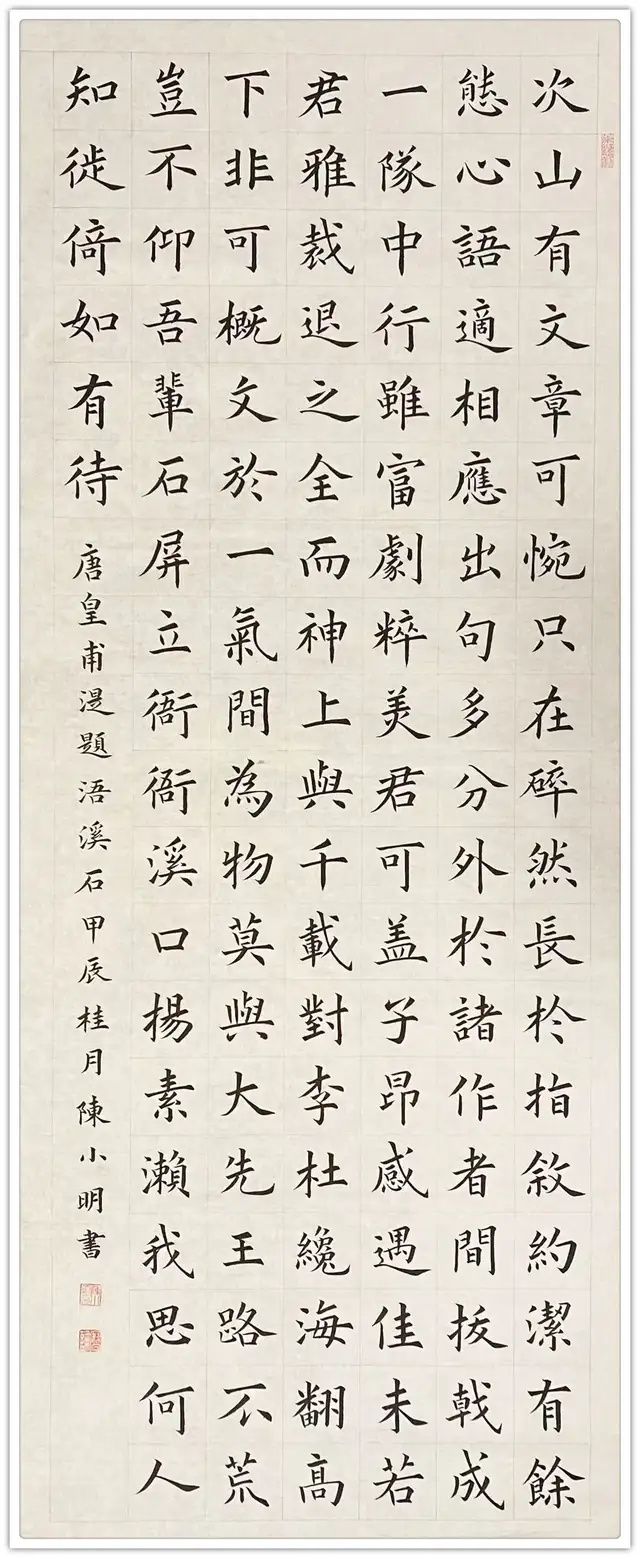 次山有文章可惋只在碎然長於指敘約潔有餘
態心語適相應出句多分外於諸作者間拔戟成
一隊中行雖富劇粹美君可盖子昂感遇佳未若
君雅裁退之全而神上與千載對李杜纔海翻高
下非可概文於一氣間為物莫與大先王路不荒
豈不仰吾輩石屏立衙衙溪口揚素瀨我思何人
知徙倚如有待
唐皇甫湜題浯溪石甲辰桂月陳小明書